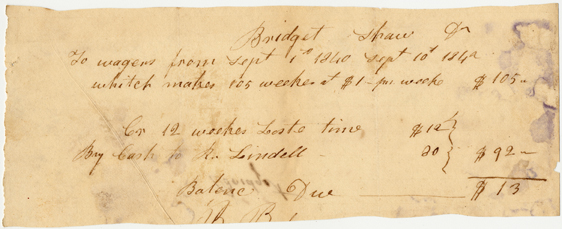 Bridget Shaw Dr
To wagers from Sept 1st 1840 Sept 10th 1842
whitch makes 105 weeks at $1 - per weeke $105 -
Cr 12 weekes Loste time $12
By Cash to R. Lindell - 80 $92 -
Balence Due $13